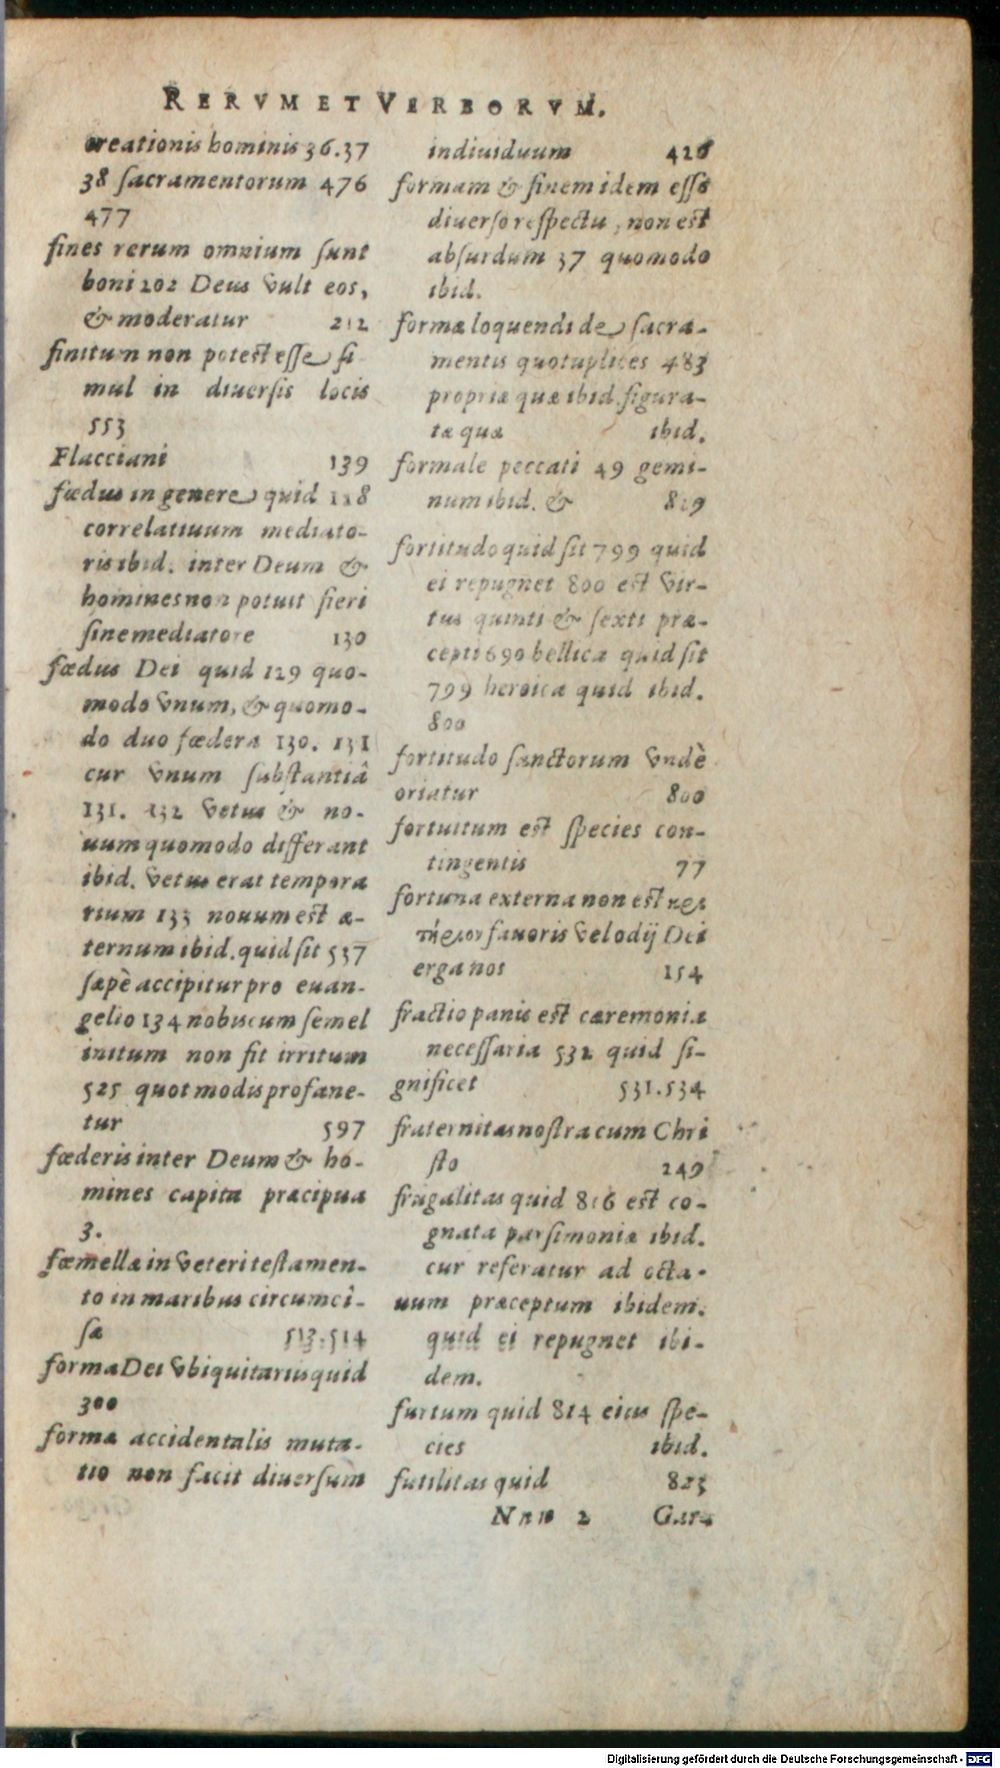 RERVM ET VERBORVM.
creationis hominis 36.37
38 sacramentorum 476
477
fines rerum omnium sunt
boni 202 Deus vult eos,
& moderatur 212
finitum non potest esse si
mul in diuersis locis
553
Flacciani 139
fœdus in genere quid 128
correlatiuum mediato-
ris ibid. inter Deum &
homines non potuit fieri
sine mediatore 130
fœdus Dei quid 129 quo-
modo vnum, & quomo-
do duo fœdera 130. 131
cur vnum substantiâ
131. 132 vetus & no-
uum quomodo differant
ibid. vetus erat tempora
rium 133 nouum est æ-
ternum ibid. quid sit 537
sæpè accipitur pro euan-
gelio 134 nobiscum semel
initum non fit irritum
525 quot modis profane-
tur 597
fœderis inter Deum & ho-
mines capita præcipua
3.
fœmellæ in veteri testamen-
to in maribus circumci-
sæ 513.514
forma Dei vbiquitariis quid
300
formæ accidentalis muta-
tio non facit diuersum
indiuiduum 426
formam & finem idem esse
diuerso respectu, non est
absurdum 37 quomodo
ibid.
formæ loquendi de sacra-
mentis quotuplices 483
propriæ quæ ibid. figura-
tæ quæ ibid.
formale peccati 49 gemi-
num ibid. & 819
fortitudo quid sit 799 quid
ei repugnet 800 est vir-
tus quinti & sexti præ-
cepti 690 bellica quid sit
799 heroica quid ibid.
800
fortitudo sanctorum vndè
oriatur 800
fortuitum est species con-
tingentis 77
fortuna externa non est κρι
τήριον fauoris vel odij Dei
erga nos 154
fractio panis est cæremonia
necessaria 532 quid si-
gnificet 531.534
fraternitas nostra cum Chri
sto 249
frugalitas quid 816 est co-
gnata parsimoniæ ibid.
cur referatur ad octa-
uum præceptum ibidem.
quid ei repugnet ibi-
dem.
furtum quid 814 eius spe-
cies ibid.
futilitas quid 823
Nnn 2 Gara
Digitalisierung gefördert durch die Deutsche Forschungsgemeinschaft - DFG